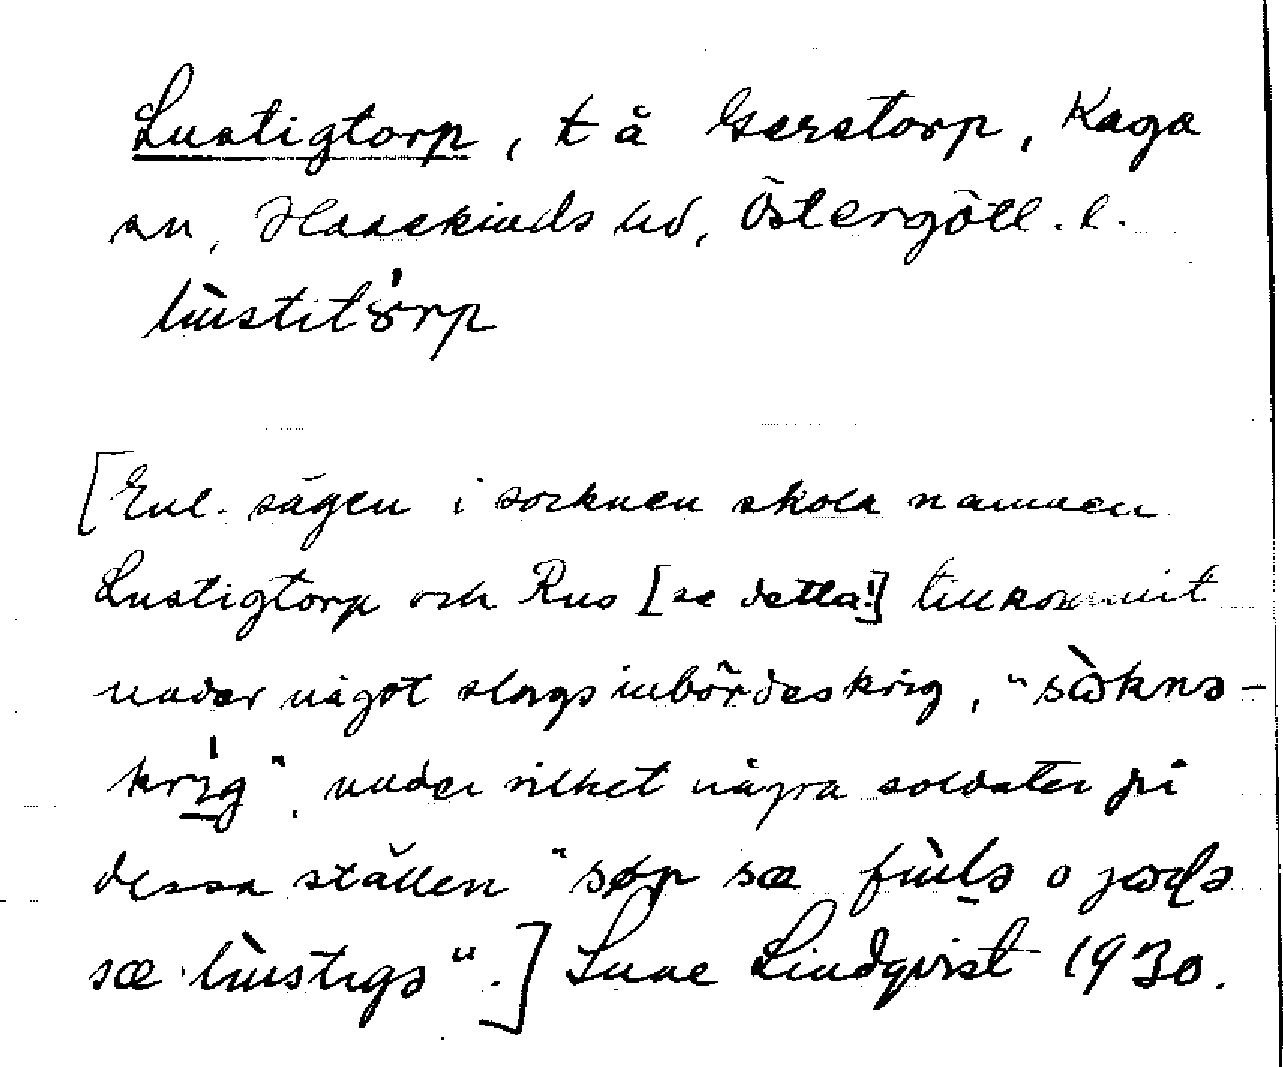 Lustigtorp, t å Gerstorp, Kaga
sn, Hanekinds hd, Östergötl. l.
lùstitórp
[Enl. sägen i socknen skola namnen
Lustigtorp och Rus [se detta!] tillkommit
under något slags inbördeskrig, "sòknə-
krig", under vilket några soldater på
dessa ställen "søp sæ fùlə o jœḍə
sæ lùstigə".] Sune Lindqvist 1930.